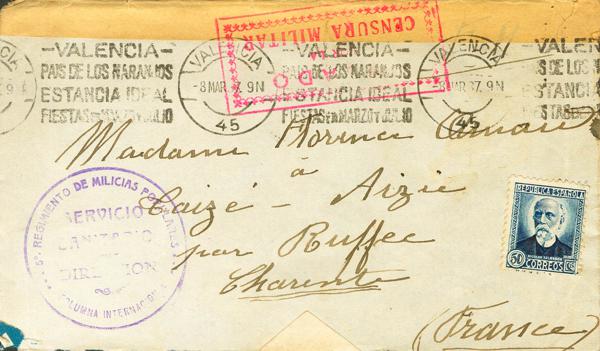 VALENCIA
PAIS DE LOS NARANJOS
ESTANCIA IDEAL
FIESTAS EN MARZO Y JULIO
VALENCIA
-8 MAR 37. 9 N
45
CENSURA MILITAR
VALENCIA
PAIS DE LOS NARANJOS
ESTANCIA IDEAL
FIESTAS EN MARZO Y JULIO
VALENCIA
MAR 37. 9 N
45
VALENCIA
PAIS DE LOS NA
ESTANCIA
FIESTAS
Madame Florence
à
Caizé-Aizie
par Ruffec
Charente
(France)
5º REGIMIENTO DE MILICIAS POPULARES
SERVICIO
SANITARIO
DIRECCION
COLUMNA INTERNACIONAL
REPUBLICA ESPAÑOLA
NICOLAS SALMERON
50 CORREOS CTS